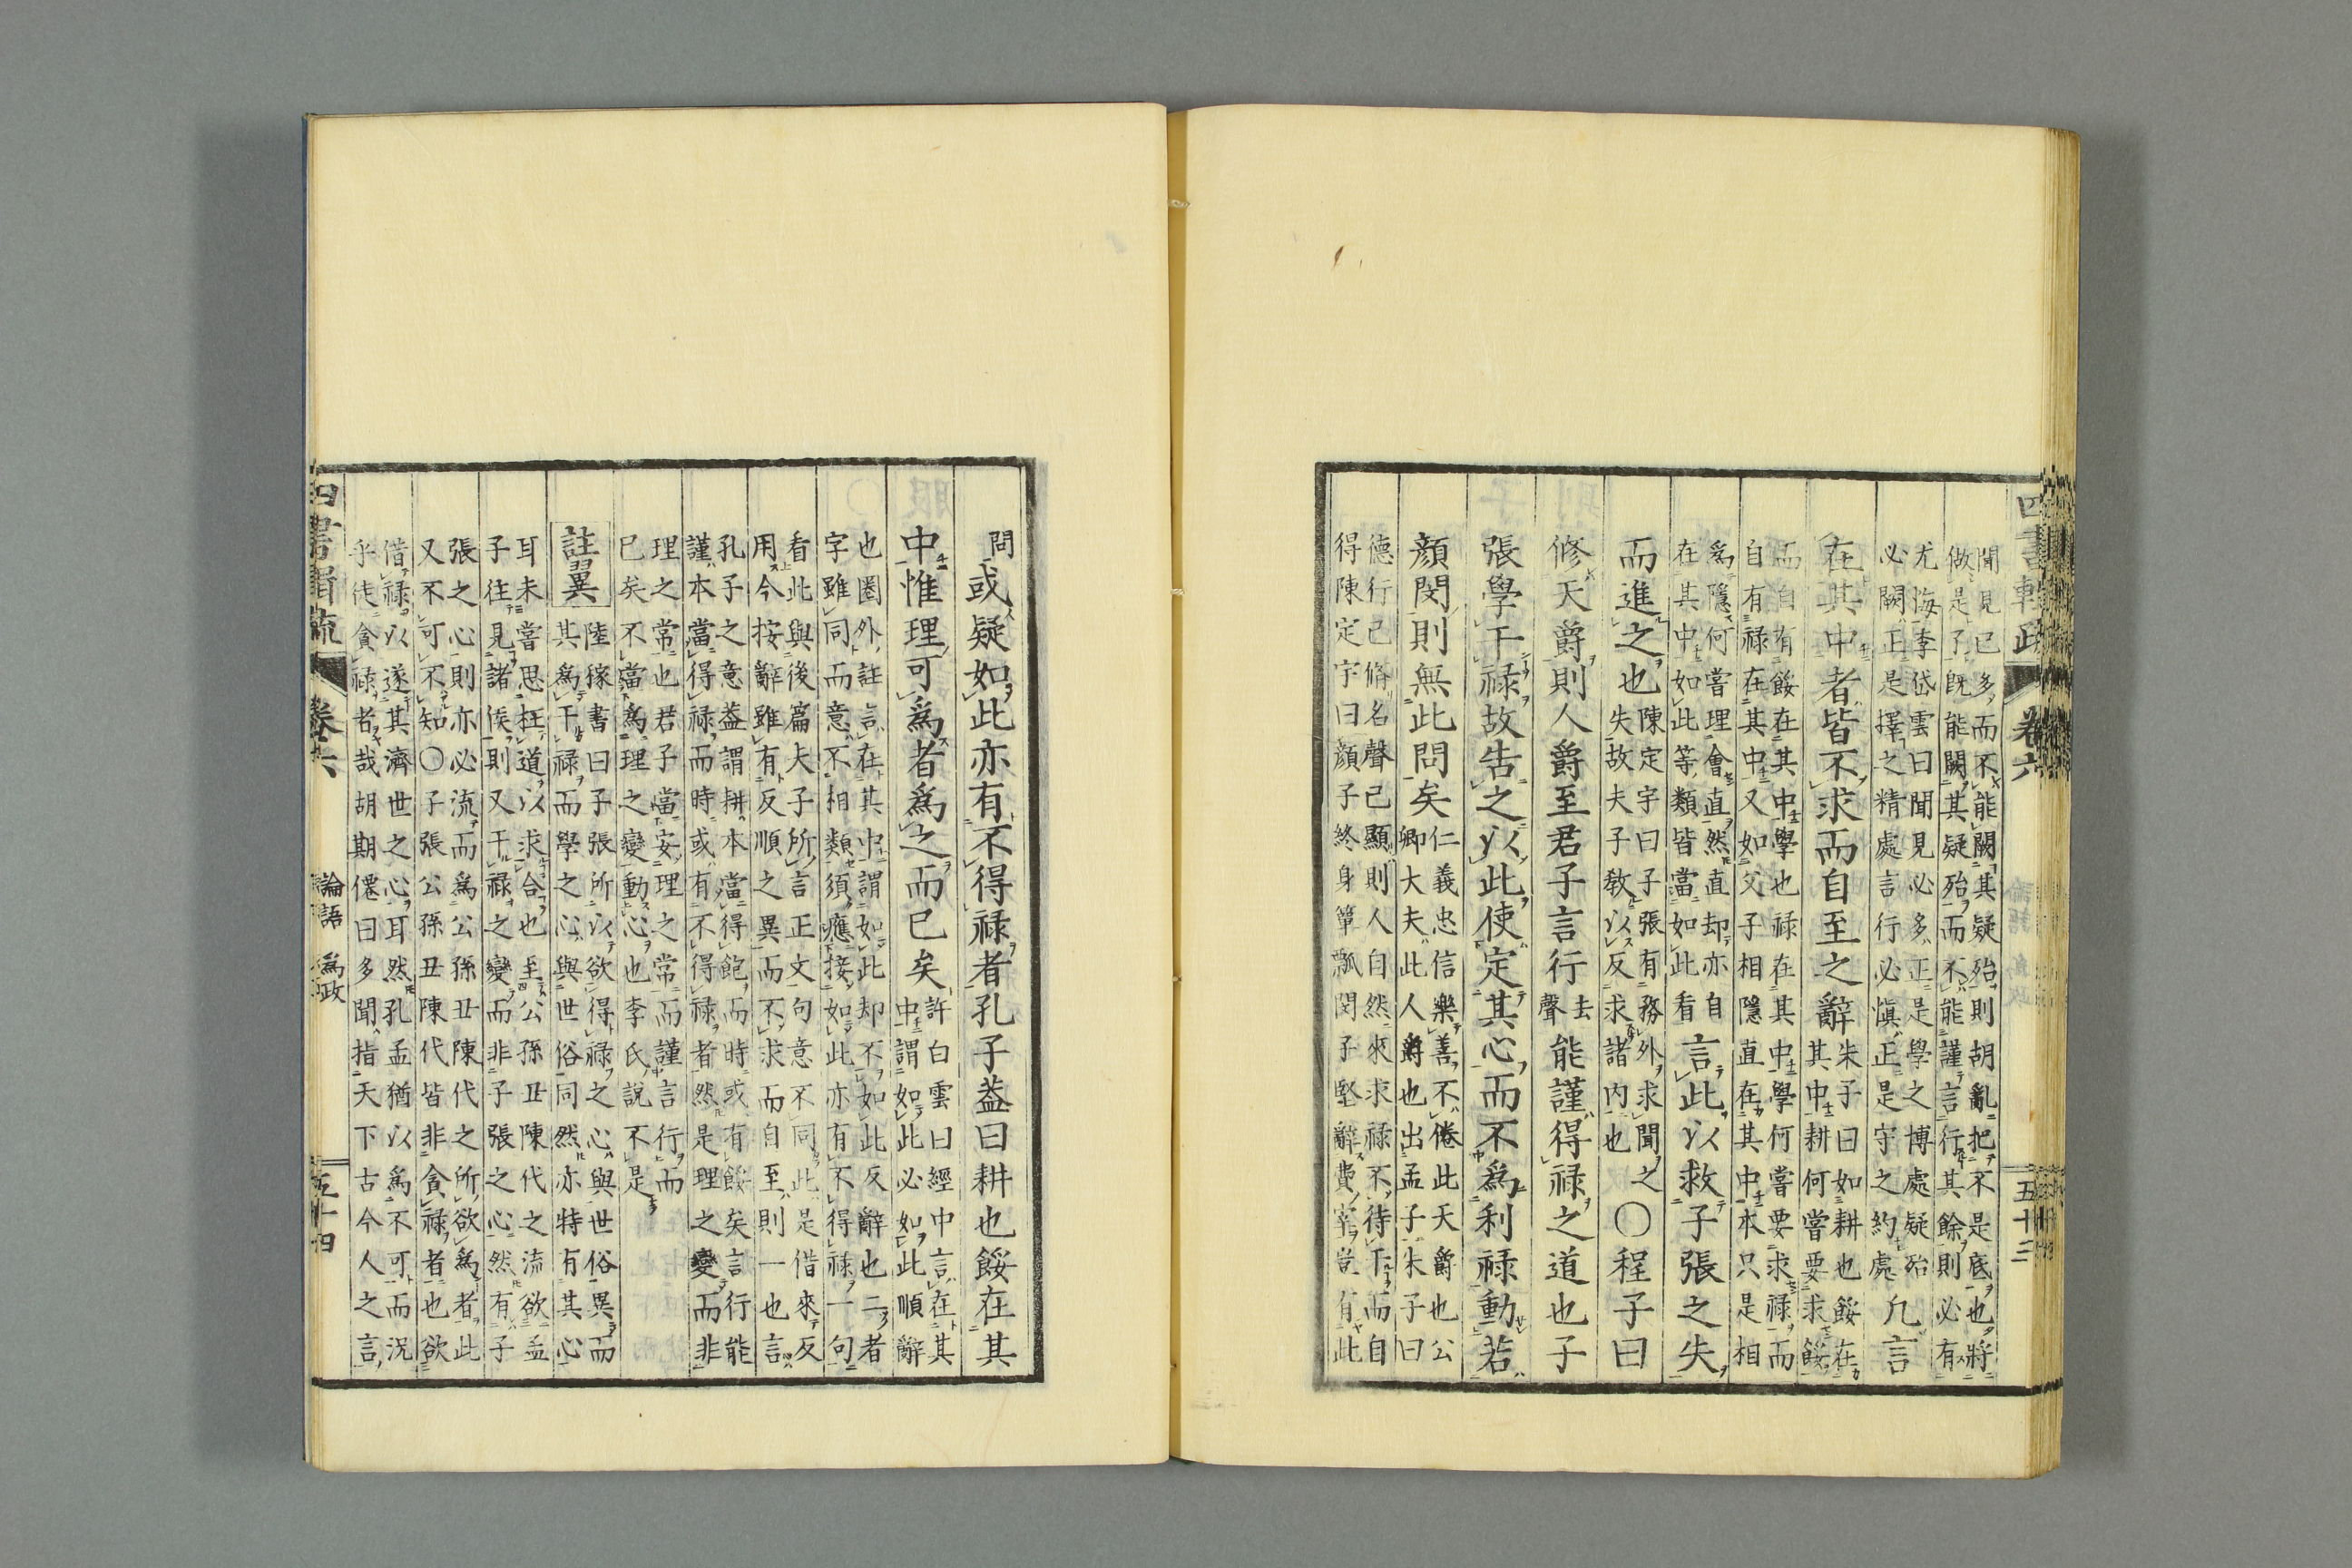 聞見已多而不能闕其疑殆則胡亂把不是底也將
做是了既能闕其疑殆而不能謹言行其餘則必有
尤悔李岱雲曰聞見必多正是學之博處疑殆
必闕正是擇之精處言行必愼正是守之約處凡言
在其中者皆不求而自至之辭朱子曰如耕也餒在
其中耕何嘗要求餒
而自有餒在其中學也祿在其中學何嘗要求祿而
自有祿在其中又如父子相隱直在其中本只是相
爲隱何嘗理會直然直却亦自
在其中如此等類皆當如此看言此以救子張之失
而進之也陳定宇曰子張有務外求聞之
失故夫子敎以反求諸內也〇程子曰
修天爵則人爵至君子言行去聲能謹得祿之道也子
張學干祿故告之以此使定其心而不爲利祿動若
顏閔則無此問矣仁義忠信樂善不倦此天爵也公
卿大夫此人爵也出孟子朱子曰
德行已脩名聲已顯則人自然來求祿不待干而自
得陳定宇曰顏子終身簞瓢閔子堅辭費宰豈有此
四書輯疏 卷六 五十三
問或疑如此亦有不得祿者孔子蓋曰耕也餒在其
中惟理可爲者爲之而已矣許白雲曰經中言在其
中謂如此必如此順辭
也圈外註言在其中謂如此却不如此反辭也二者
字雖同而意不相類須應接如此亦有不得祿一句
看此與後篇夫子所言正文句意不同此是借來反
用今按辭雖有反順之異而不求而自至則一也言
孔子之意蓋謂耕本當得飽而時或有餒矣言行能
謹本當得祿而時或有不得祿者然是理之變而非
理之常也君子當安理之常而謹言行而
已矣不當爲理之變動心也李氏說不是
註翼陸稼書曰子張所以欲得祿之心與世俗異而
其爲干祿而學之心與世俗同然亦特有其心
耳未嘗思枉道以求合也至公孫丑陳代之流欲孟
子往見諸侯則又干祿之變而非子張之心然有子
張之心則亦必流而爲公孫丑陳代之所欲爲者此
又不可不知〇子張公孫丑陳代皆非貪祿者也欲
借祿以遂其濟世之心耳然孔孟猶以爲不可而況
乎徒貪祿者哉胡期僊曰多聞指天下古今人之言
四書輯疏 卷六 論語 爲政 五十四